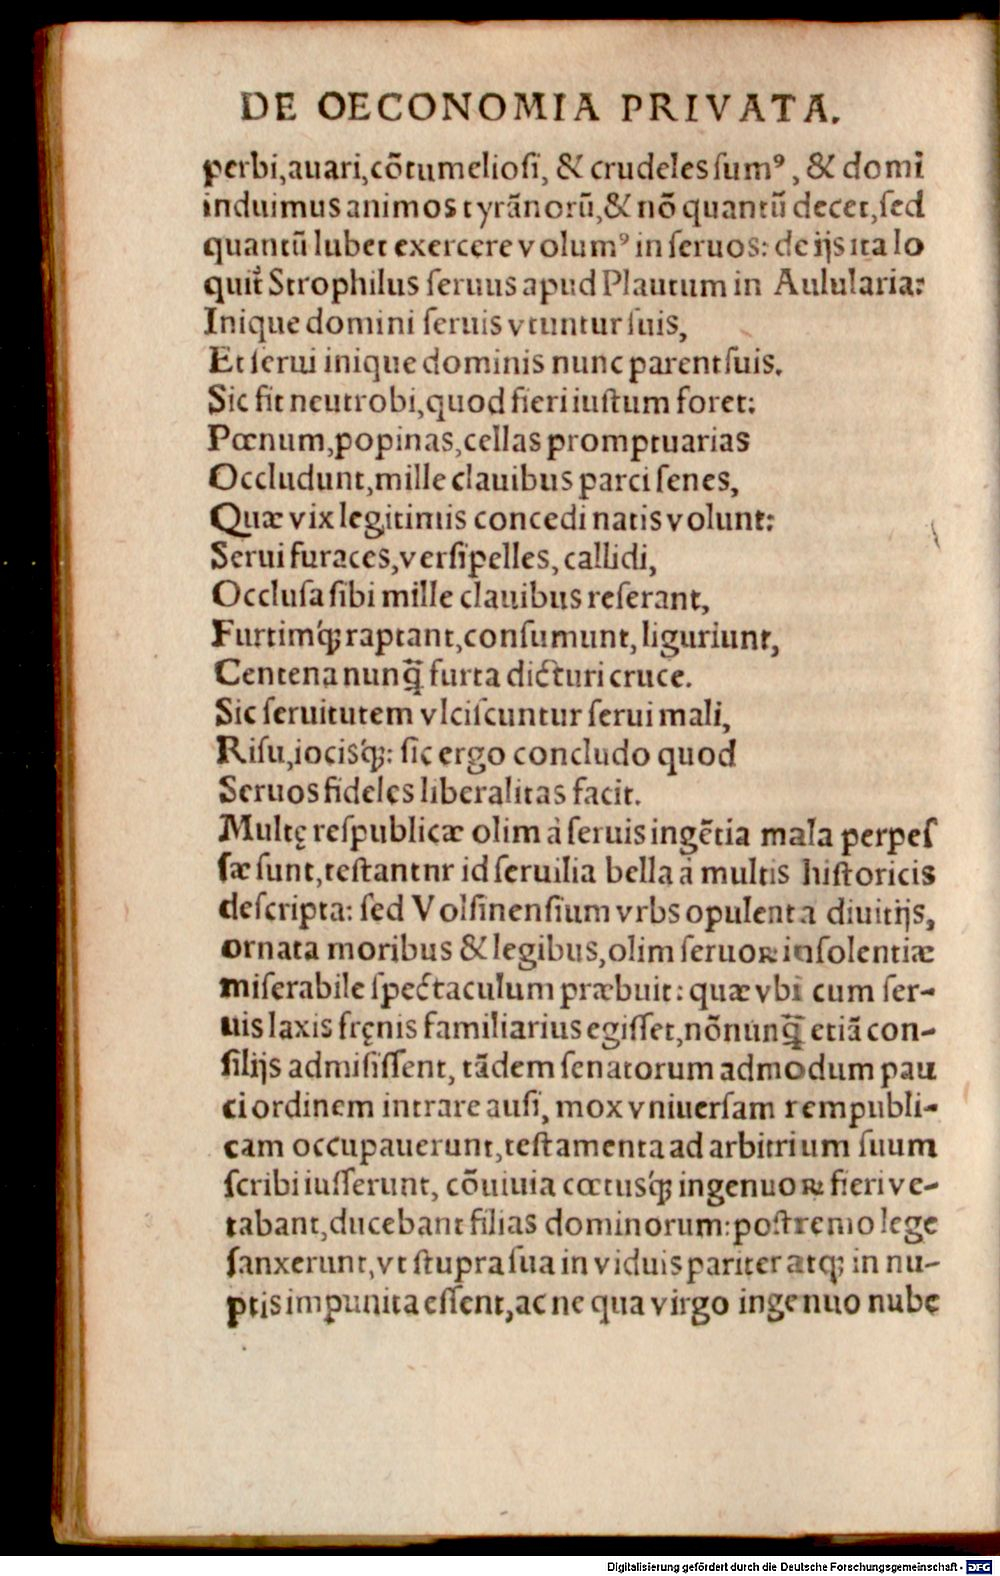 DE OECONOMIA PRIVATA.
perbi,auari,cõtumeliosi, & crudeles sumꝰ, & domi
induimus animos tyrãnorũ,& nõ quantũ decet,sed
quantũ lubet exercere volumꝰ in seruos: de ijs ita lo
quit᷑ Strophilus seruus apud Plautum in Aulularia:
Inique domini seruis vtuntur suis,
Et serui inique dominis nunc parent suis.
Sic fit neutrobi,quod fieri iustum foret:
Pœnum,popinas,cellas promptuarias
Occludunt,mille clauibus parci senes,
Quæ vix legitimis concedi natis volunt:
Serui furaces,versipelles, callidi,
Occlusa sibi mille clauibus reserant,
Furtimq́ꝫ raptant,consumunt, liguriunt,
Centena nunꝗ̃ furta dicturi cruce.
Sic seruitutem vlciscuntur serui mali,
Risu,iocisq́ꝫ: sic ergo concludo quod
Seruos fideles liberalitas facit.
Multę respublicæ olim à seruis ingẽtia mala perpes
sæ sunt,testantnr id seruilia bella à multis historicis
descripta: sed Volsinensium vrbs opulenta diuitijs,
ornata moribus & legibus,olim seruoꝝ insolentiæ
miserabile spectaculum præbuit: quæ vbi cum ser-
uis laxis fręnis familiarius egisset,nõnunꝗ̃ etiã con-
silijs admisissent, tãdem senatorum admodum pau
ci ordinem intrare ausi, mox vniuersam rempubli-
cam occupauerunt,testamenta ad arbitrium suum
scribi iusserunt, cõuiuia cœtusq́ꝫ ingenuoꝝ fieri ve-
tabant,ducebant filias dominorum:postremo lege
sanxerunt,vt stupra sua in viduis pariter atqꝫ in nu-
ptis impunita essent,ac ne qua virgo ingenuo nube
Digitalisierung gefördert durch die Deutsche Forschungsgemeinschaft - DFG